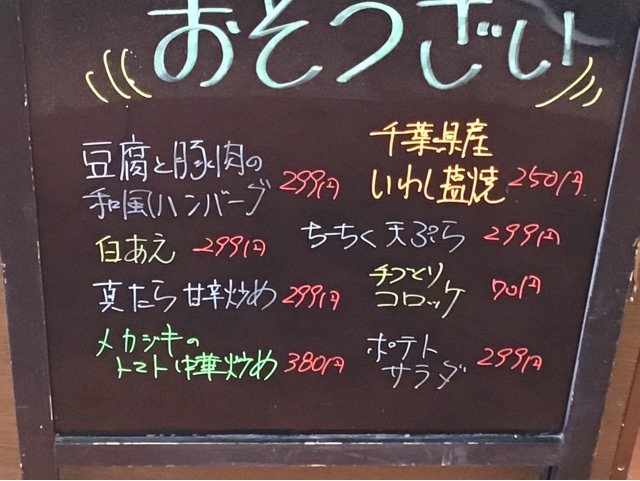 おそうざい
豆腐と豚肉の
和風ハンバーグ 299円
白あえ 299円
真たら甘辛炒め 299円
メカジキの
トマト中華炒め 380円
千葉県産
いわし塩焼 250円
ちーちく天ぷら 299円
手づくり
コロッケ 70円
ポテト
サラダ 299円